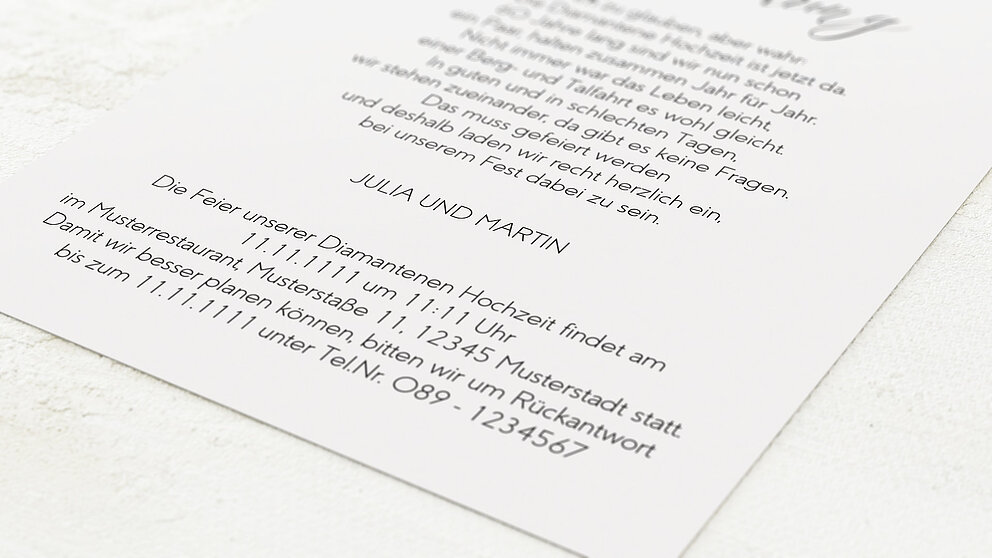 zu glauben, aber wahr:
Diamantene Hochzeit ist jetzt da.
60 Jahre lang sind wir nun schon
ein Paar, halten zusammen Jahr für Jahr.
Nicht immer war das Leben leicht,
einer Berg- und Talfahrt es wohl gleicht.
In guten und in schlechten Tagen,
wir stehen zueinander, da gibt es keine Fragen.
Das muss gefeiert werden
und deshalb laden wir recht herzlich ein,
bei unserem Fest dabei zu sein.
JULIA UND MARTIN
Die Feier unserer Diamantenen Hochzeit findet am
11.11.1111 um 11:11 Uhr
im Musterrestaurant, Musterstaße 11, 12345 Musterstadt statt.
Damit wir besser planen können, bitten wir um Rückantwort
bis zum 11.11.1111 unter Tel.Nr. 089 - 1234567